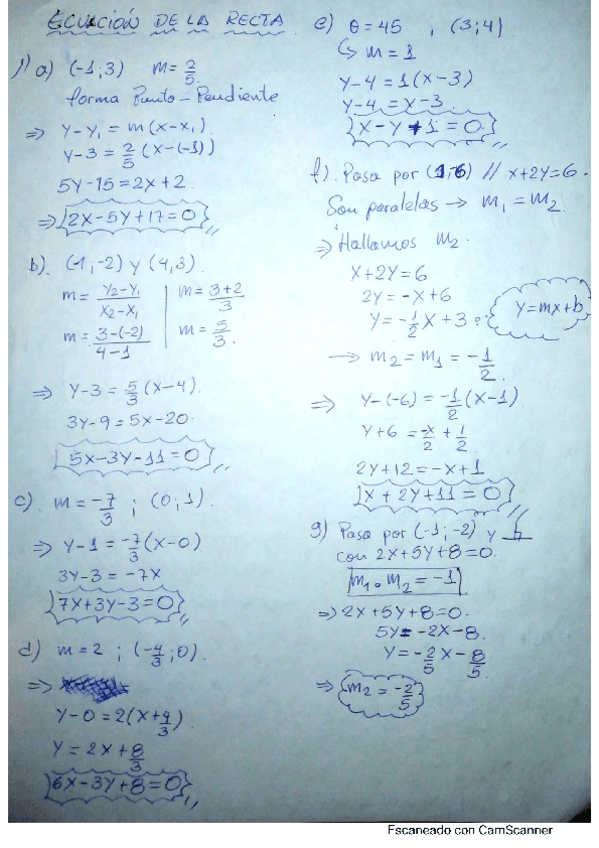 ECUACIÓN DE LA RECTA.
1) a) (-1;3) m=2/5.
forma Punto-Pendiente
⇒ y-y₁ = m(x-x₁)
y-3 = 2/5 (x-(-1))
5y-15=2x+2.
⇒ 2x-5y+17=0
b). (-1,-2) y (4,3).
m= y₂-y₁/x₂-x₁ | m= 3+2/3
m= 3-(-2)/4-1 | m= 5/3.
⇒ y-3 = 5/3 (x-4).
3y-9=5x-20.
5x-3y-11=0
c). m= -7/3 ; (0;1).
⇒ y-1= -7/3 (x-0)
3y-3= -7x
7x+3y-3=0
d) m=2 ; (-4/3;0).
⇒
y-0=2(x+4/3)
y=2x+8/3
6x-3y+8=0
e) θ=45 , (3;4)
↳ m=1
y-4=1(x-3)
y-4=x-3.
x-y+1=0
f). Pasa por (1;-6) // x+2y=6.
Son paralelas → m₁=m₂.
⇒ Hallamos m₂.
x+2y=6
2y=-x+6
y=-1/2x+3
y=mx+b
→ m₂=m₁=-1/2.
⇒ y-(-6)=-1/2(x-1)
y+6=-x/2+1/2
2y+12=-x+1
x+2y+11=0
g) Pasa por (-1;-2) y ⊥
con 2x+5y+8=0.
m₁.m₂=-1
⇒ 2x+5y+8=0.
5y=-2x-8.
y=-2/5x-8/5.
⇒ m₂=-2/5
Escaneado con CamScanner